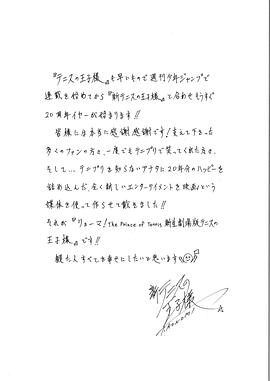 『テニスの王子様』も早いもので週刊少年ジャンプで
連載を始めてから『新テニスの王子様』と合わせもうすぐ
20周年イヤーが始まります!!
皆様には本当に感謝感謝です!支えて下さった
多くのファンの方々、一度でもテニプリで笑ってくれた方々、
そして…テニプリを知らないアナタに20年分のハッピーを
詰め込んだ、全く新しいエンターテイメントを映画という
媒体を使って作らせて戴きました!!
それが『リョーマ! The Prince of Tennis 新生劇場版テニスの
王子様』です!!
観た人すべてを幸せにしたいと思います
新テニスの
王子様